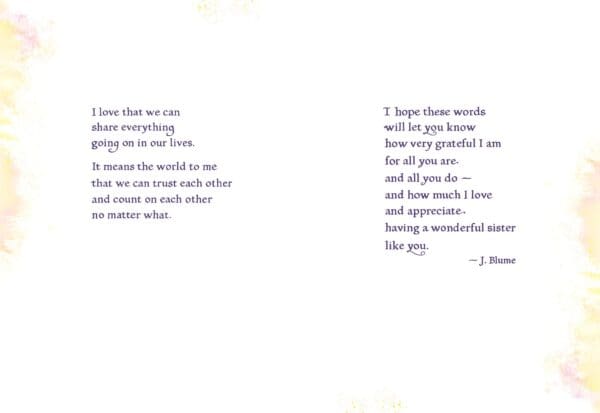 I love that we can
share everything
going on in our lives.
It means the world to me
that we can trust each other
and count on each other
no matter what.
I hope these words
will let you know
how very grateful I am
for all you are
and all you do —
and how much I love
and appreciate
having a wonderful sister
like you.
— J. Blume